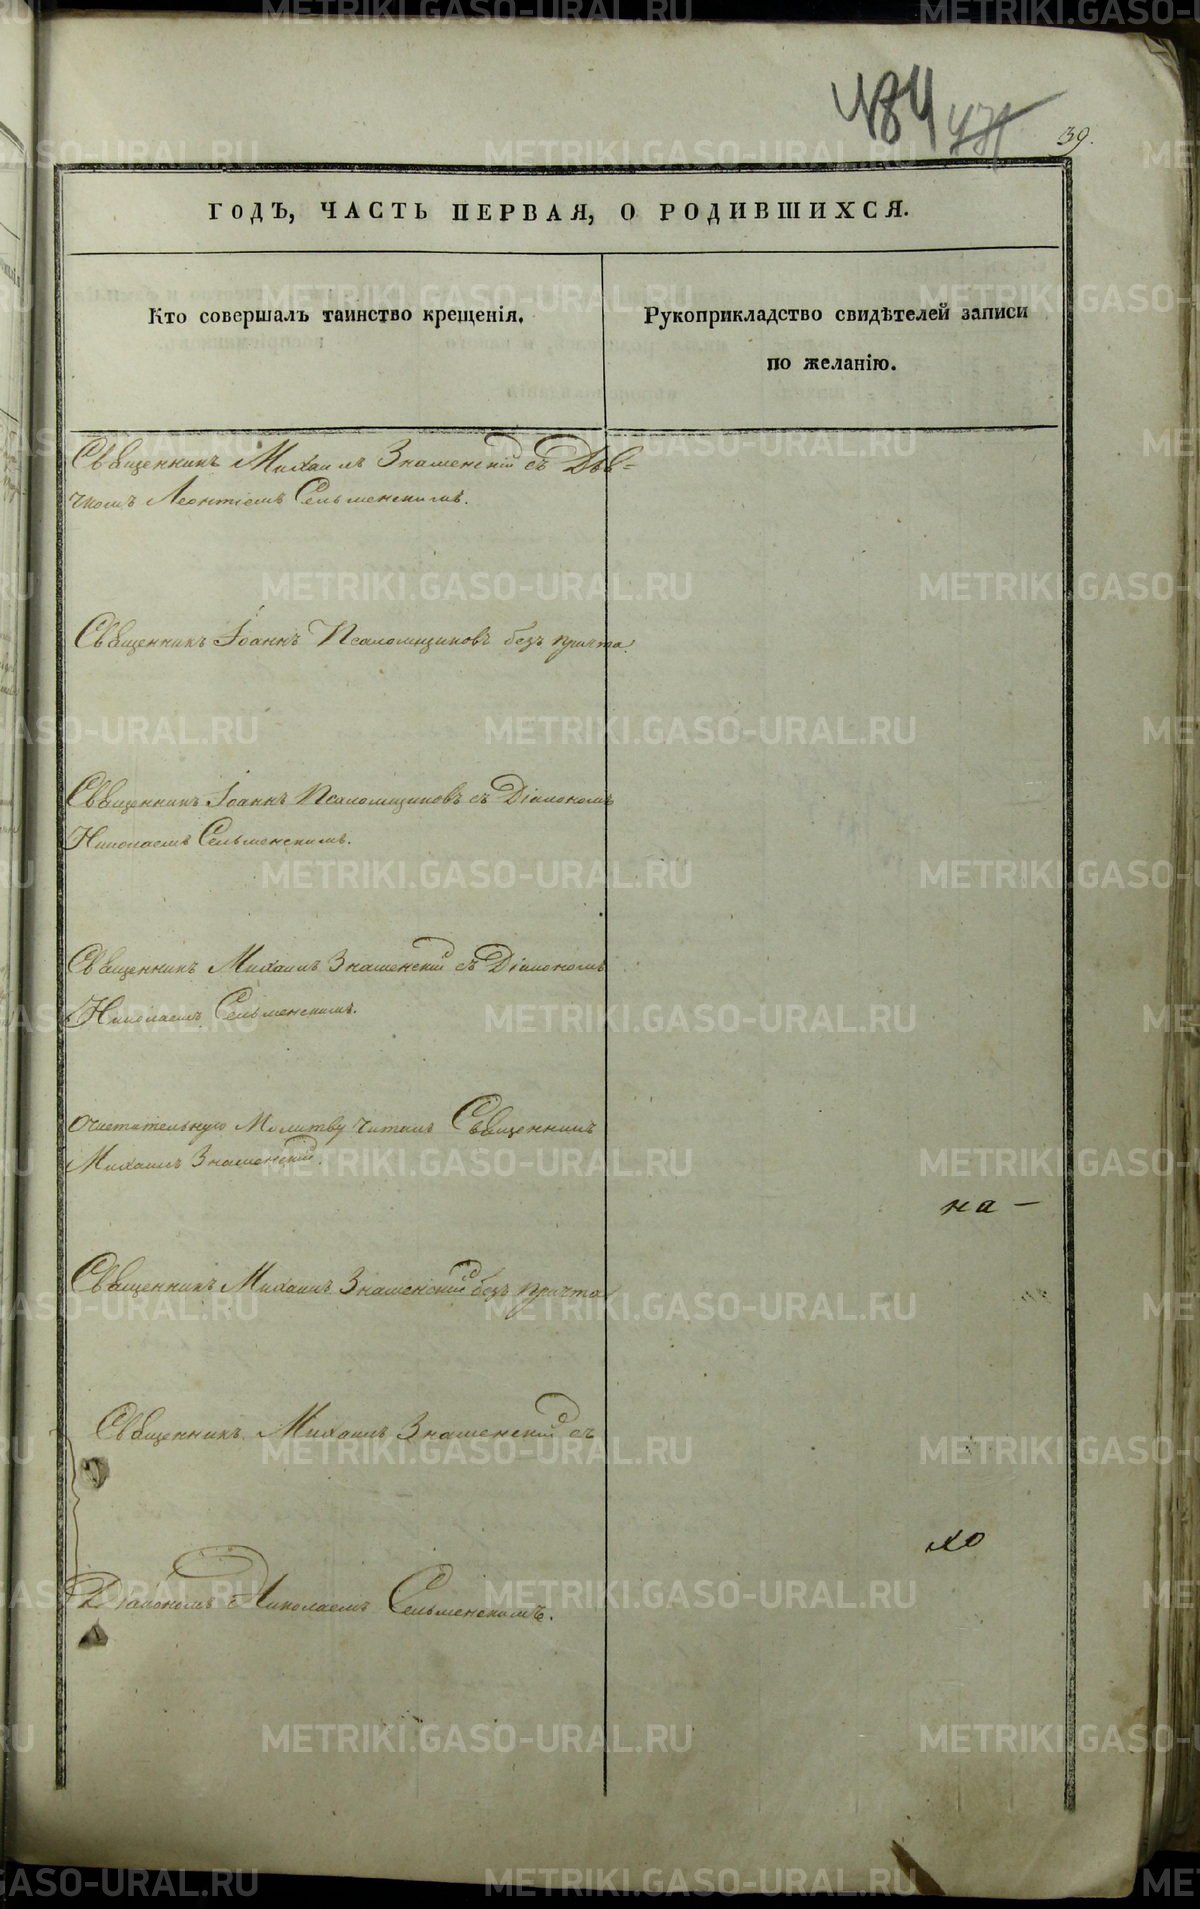 484 471
39.
ГОДЪ, ЧАСТЬ ПЕРВАЯ, О РОДИВШИХСЯ.
Кто совершалъ таинство крещенія.
Рукоприкладство свидѣтелей записи
по желанію.
Священникъ Михаилъ Знаменскій съ Дьяч=
комъ Леонтіемъ Сельменскимъ.
Священникъ Іоаннъ Псаломщиковъ безъ причта.
Священникъ Іоаннъ Псаломщиковъ съ Діакономъ
Николаемъ Сельменскимъ.
Священникъ Михаилъ Знаменскій съ Діакономъ
Николаемъ Сельменскимъ.
Очистительную Молитву читалъ Священникъ
Михаилъ Знаменскій.
на —
Священникъ Михаилъ Знаменскій безъ причта
Священникъ Михаилъ Знаменскій съ
хо
Діакономъ Николаемъ Сельменскимъ.
METRIKI.GASO-URAL.RU